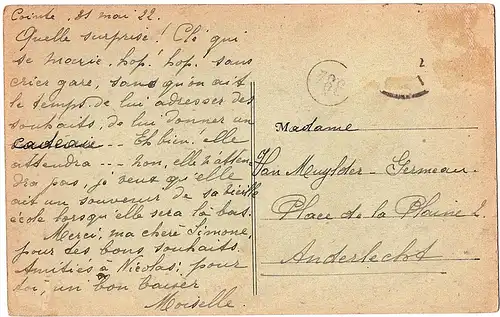 Cointe, 21 mai 22.
Quelle surprise! Clé qui
se marie, hop! hop! sans
crier gare, sans qu'on ait
le temps de lui adresser des
souhaits, de lui donner un
cadeau -- Eh bien! elle
attendra -- non, elle n'atten-
dra pas, je veux qu'elle
ait un souvenir de sa vieille
école lorsqu'elle sera là bas.
Merci, ma chère Simone,
pour tes bons souhaits.
Amitiés à Nicolas; pour
toi, un bon baiser
Moiselle.
332
Madame
Van Muylder-Germeau.
Place de la Plaine 2.
Anderlecht